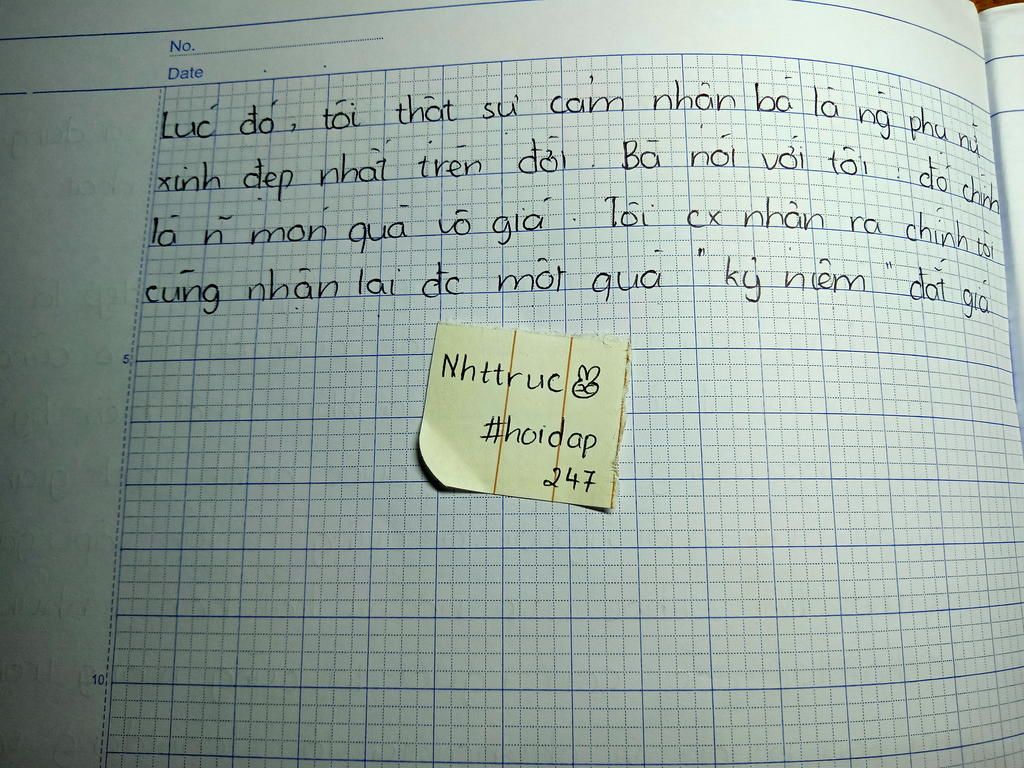 No.
Date
Lúc đó, tôi thật sự cảm nhận bà là ng phụ nữ
xinh đẹp nhất trên đời. Bà nói với tôi: đó chính
là ~n món quà vô giá. Tôi cx nhận ra chính tôi
cũng nhận lại đc một quà "kỷ niệm" đắt giá
5
Nhttruc
#hoidap
247
10